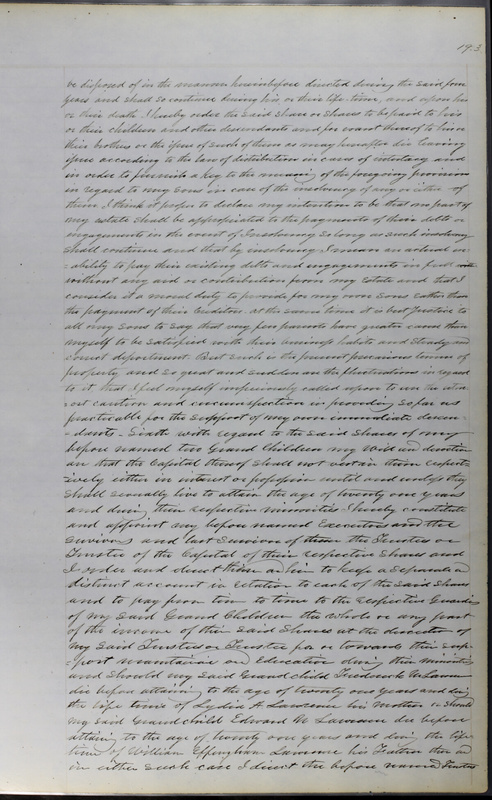 193
be disposed of in the manner hereinbefore directed during the said four
years and shall so continue during his or their life-time, and upon his
or their death I hereby order the said Share or Shares to be paid to his
or their children and other descendants and for want thereof to his or
their brothers or the issue of such of them as may hereafter die leaving
issue according to the law of distribution in cases of intestacy and
in order to provide a key to the meaning of the foregoing provisions
in regard to my sons in case of the insolvency of any or either of
them I think it proper to declare my intention to be that no part of
my estate shall be appropriated to the payments of their debts or
engagements in the event of Insolvency so long as such insolvency
shall continue and that by insolvency I mean an actual in-
-ability to pay their existing debts and engagements in full
without any aid or contribution from my Estate and that I
consider it a moral duty to provide for my own Sons rather than
the payment of their Creditors. at the same time it is but Justice to
all my Sons to say that very few parents have greater cause than
myself to be satisfied with their business habits and Steady and
correct deportment. But such is the present precarious tenure of
property and so great and sudden are the fluctuations in regard
to it that I feel myself imperiously called upon to use the utm-
-ost caution and circumspection in providing so far as
practicable for the support of my own immediate descen-
-dants. Sixth with regard to the said shares of my
before named two Grand Children my will and devotion
are that the Capital thereof shall not vest in them respect-
ively either in interest or possession until and unless they
shall severally live to attain the age of twenty one years
and during their respective minorities I hereby constitute
and appoint my before named Executors and the
survivors and last Survivor of them the Trustees or
Trustee of the Capital of their respective Shares and
I order and direct them or him to keep a separate and
distinct account in relation to each of the said Shares
and to pay from time to time to the respective Guardians
of my said Grand Children the whole or any part
of the income of their said Shares at the discretion of
my said Trustees or Trustee for or towards their supp-
-port maintenance and Education during their minorities
and should my said Grand Child Frederick N Lawrence
die before attaining to the age of twenty one years and during
the life time of Lydia A. Lawrence his Mother or should
my said Grand child Edward N. Lawrence die before
attaining to the age of twenty one years and during the life
time of William Effingham Lawrence his Father then and
in either such case I direct the before named Trustees